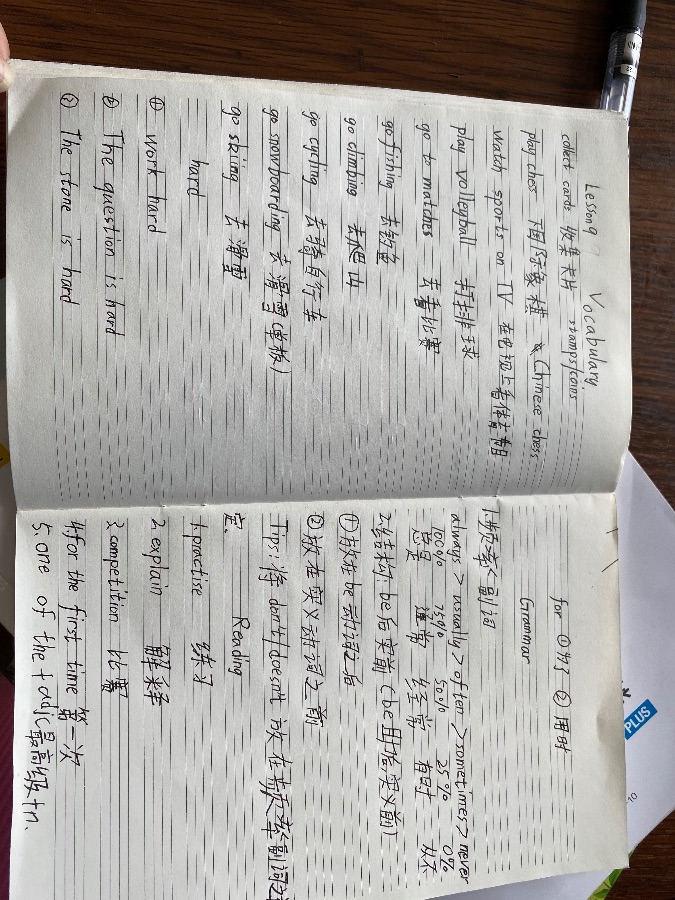 Lesson 9 Vocabulary
collect cards 收集卡片 stamps/coins
play ches 下国际象棋 Chinese chess
watch sports on TV 在电视上看体育节目
play volleyball 打排球
go to matches 去看比赛
go fishing 去钓鱼
go climbing 去爬山
go cycling 去骑自行车
go snowboarding 去滑雪(单板)
go skiing 去滑雪
hard
① work hard
② The question is hard
③ The stone is hard
for ①为了 ② 用时
Grammar
1.频率副词
always > usually > often > sometimes > never
100% 75% 50% 25% 0%
总是 通常 经常 有时 从不
2.结构: be后实前 (be 助后,实义前)
①放在be动词之后
②放在实义动词之前
Tips: 将 don't/doesn't 放在频率副词之
Reading
1.practise 练习
2.explain 解释
3.competition 比赛
4.for the first time 第一次
5. one of the + adj最高级+n.
PLUS
10